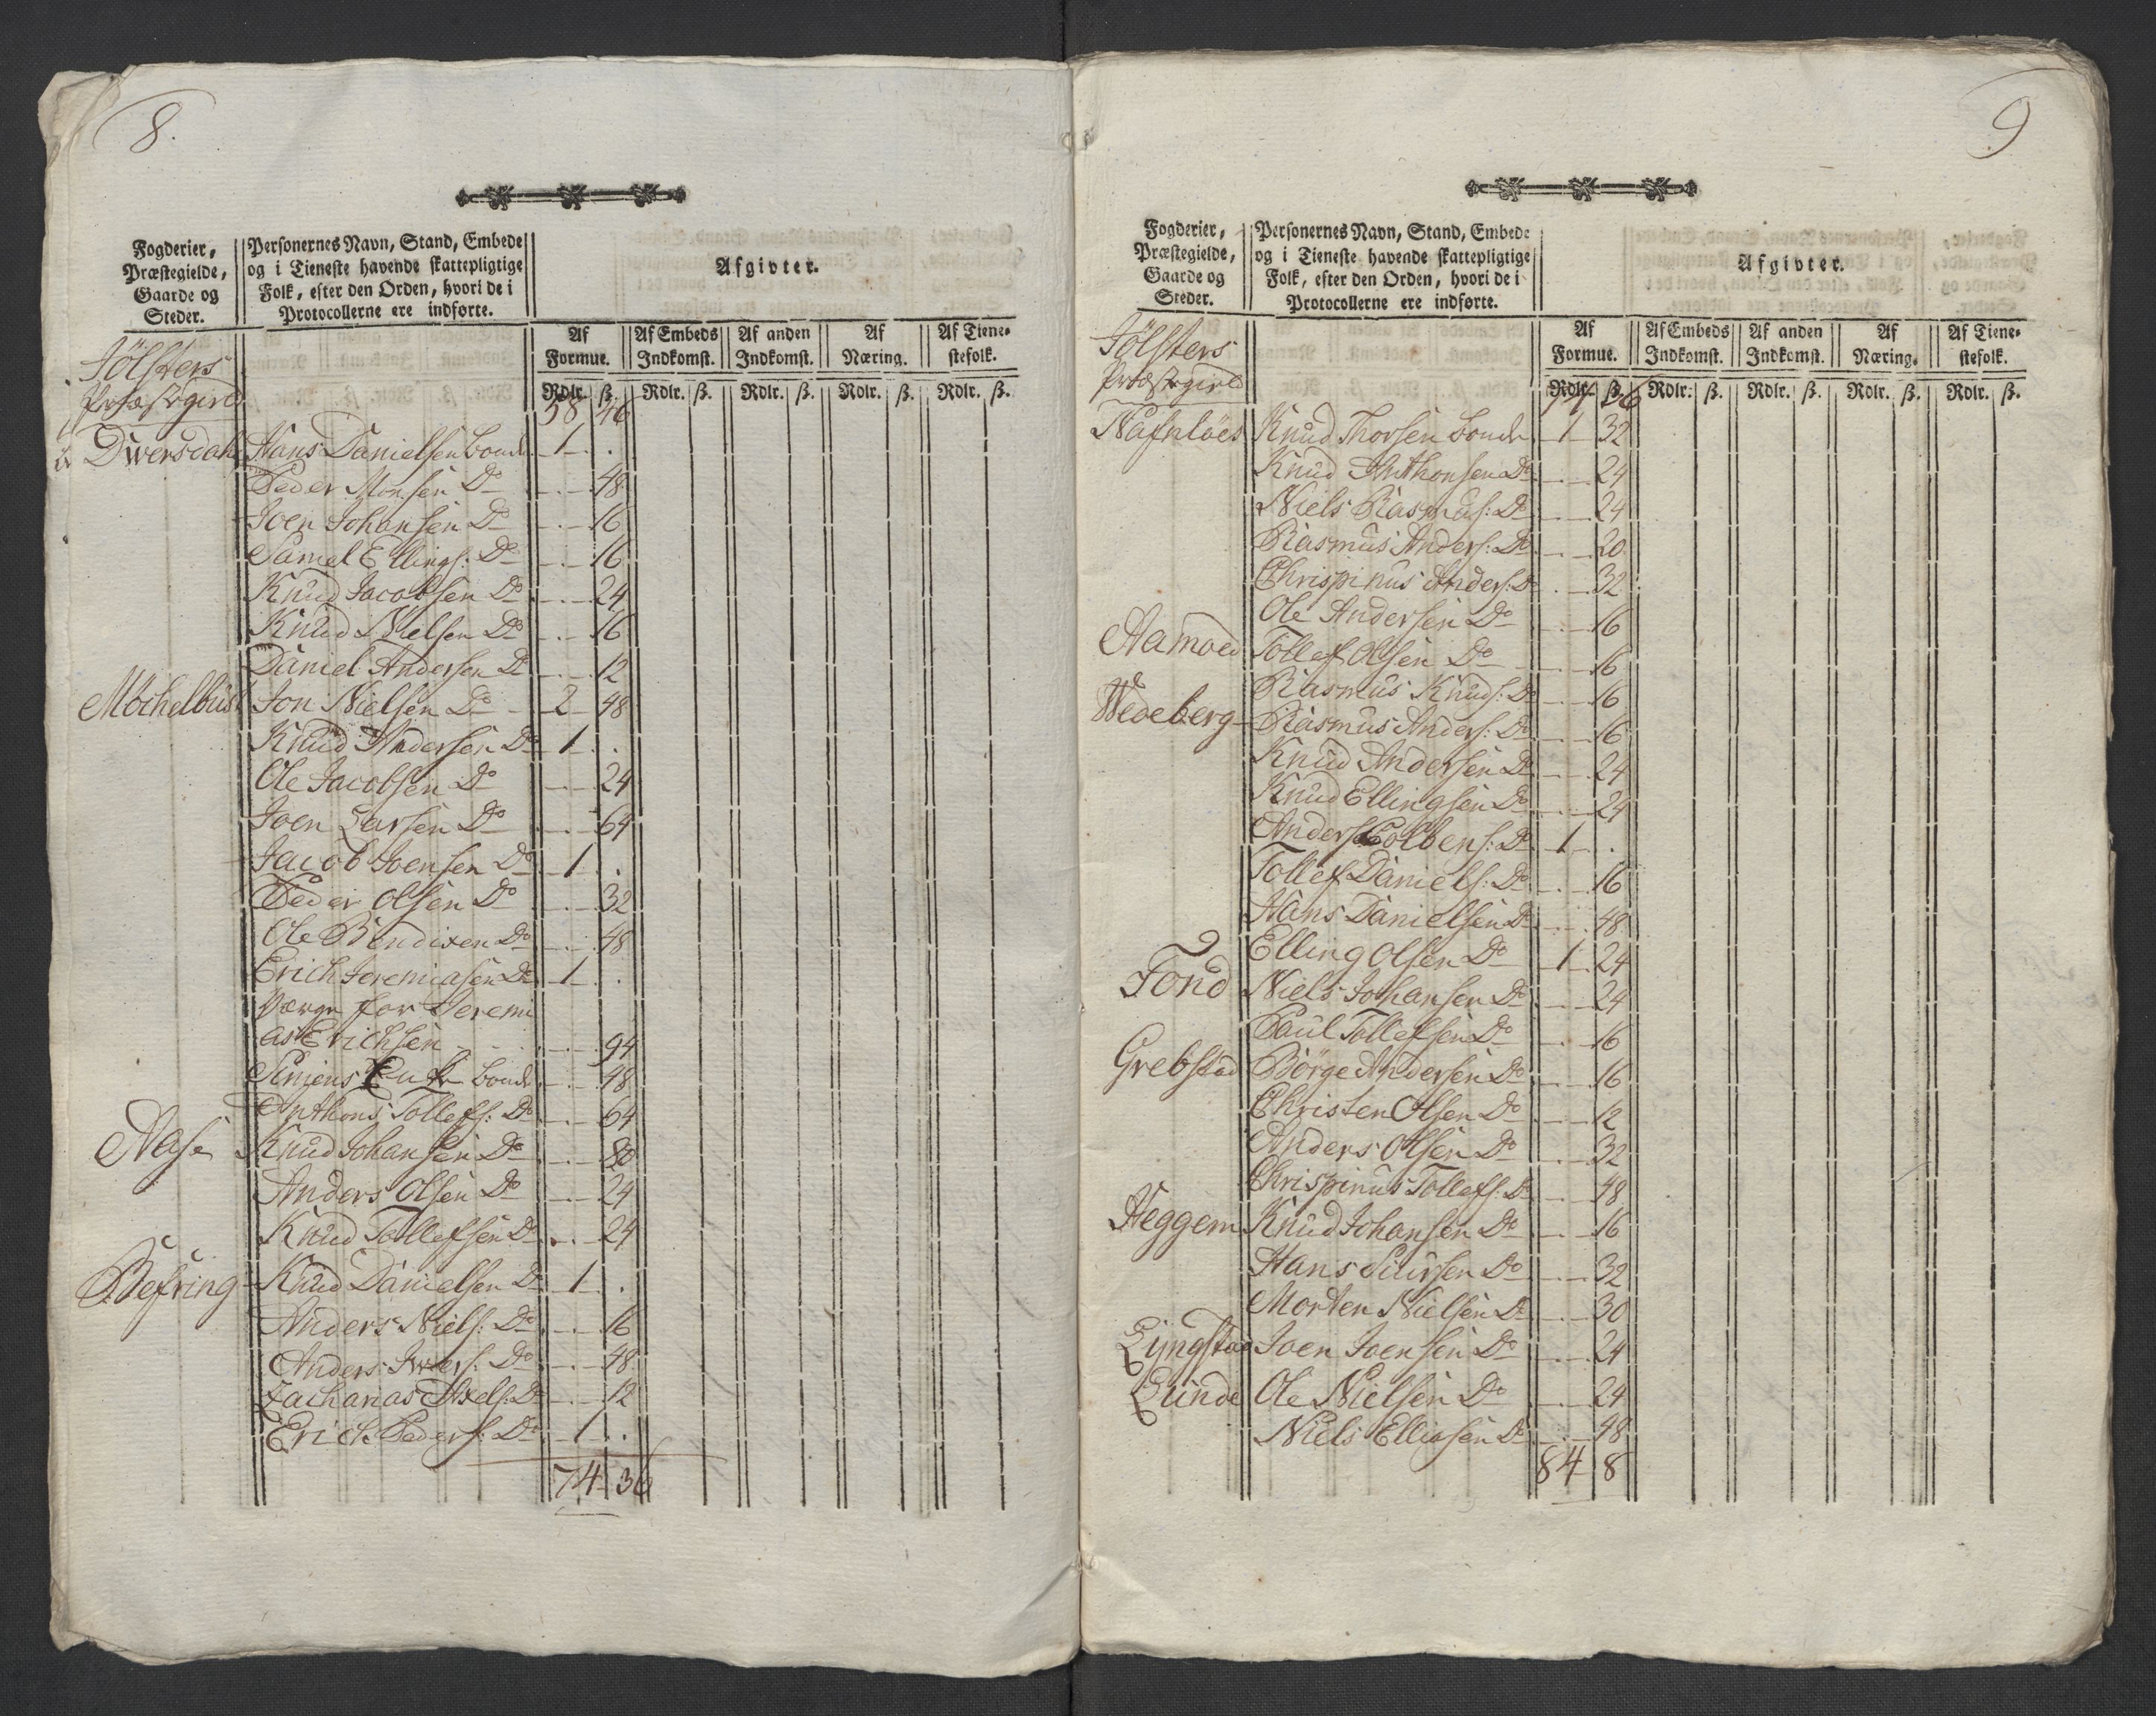 8.
Fogderier,
Præstegielde,
Gaarde og
Steder.
Personernes Navn, Stand, Embede
og i Tieneste havende skattepligtige
Folk, efter den Orden, hvori de i
Protocollerne ere indførte.
Afgivter.
Af Formue.
Af Embeds Indkomst.
Af anden Indkomst.
Af Næring.
Af Tienestefolk.
Rdlr. ß. Rdlr. ß. Rdlr. ß. Rdlr. ß. Rdlr. ß.
Jölsters
Præstegield
58 46
Dwersdahl Hans Danielsen bonde 1 .
Peder Monsen Do 48
Joen Johansen Do 16
Samel Ellings: Do 16
Knud Jacobsen Do 24
Knud Nielsen Do 16
Daniel Andersen Do 12
Möchelbust Jon Nielsen Do 2 48
Knud Andersen Do 1 .
Ole Jacobsen Do 24
Joen Larsen Do 64
Jacob Joensen Do 1 .
Peder Olsen Do 32
Ole Bendixen Do 48
Erich Jeremiasen Do 1 .
Værge for Jeremi
as Erichsen 94
Simens bonde 48
Anthons Tollefs: Do 64
Aase Knud Johansen Do 80
Anders Olsen Do 24
Knud Tollefsen Do 24
Befring Knud Danielsen Do 1 .
Anders Niels: Do 16
Anders Iwers: Do 48
Zacharias Axels: Do 12
Erich Peders: Do 1 .
74 36
9
Fogderier,
Præstegielde,
Gaarde og
Steder.
Personernes Navn, Stand, Embede
og i Tieneste havende skattepligtige
Folk, efter den Orden, hvori de i
Protocollerne ere indførte.
Afgivter.
Af Formue.
Af Embeds Indkomst.
Af anden Indkomst.
Af Næring.
Af Tienestefolk.
Rdlr. ß. Rdlr. ß. Rdlr. ß. Rdlr. ß. Rdlr. ß.
Jölsters
Præstegield
74 36
Nafnløes Knud Thorsen bonde 1 32
Knud Anthonsen Do 24
Niels Rasmus: Do 24
Rasmus Anders: Do 20
Chrispinus Anders: Do 32
Ole Andersen Do 16
Aamoed Tollef Olsen Do 16
Rasmus Knuds: Do 16
Wedeberg Rasmus Anders: Do 16
Knud Andersen Do 24
Knud Ellingsen Do 24
Anders Colbens: Do 1 .
Tollef Daniels: Do 16
Hans Danielsen Do 48
Elling Olsen Do 1 24
Fond Niels Johansen Do 24
Paul Tollefsen Do 16
Grebstad Börge Andersen Do 16
Christen Olsen Do 12
Anders Olsen Do 32
Chrispinus Tollefs: Do 48
Heggem Knud Johansen Do 16
Hans Siursen Do 32
Morten Nielsen Do 30
Lyngstad Joen Joensen Do 24
Lunde Ole Nielsen Do 24
Niels Elliasen Do 48
84 8